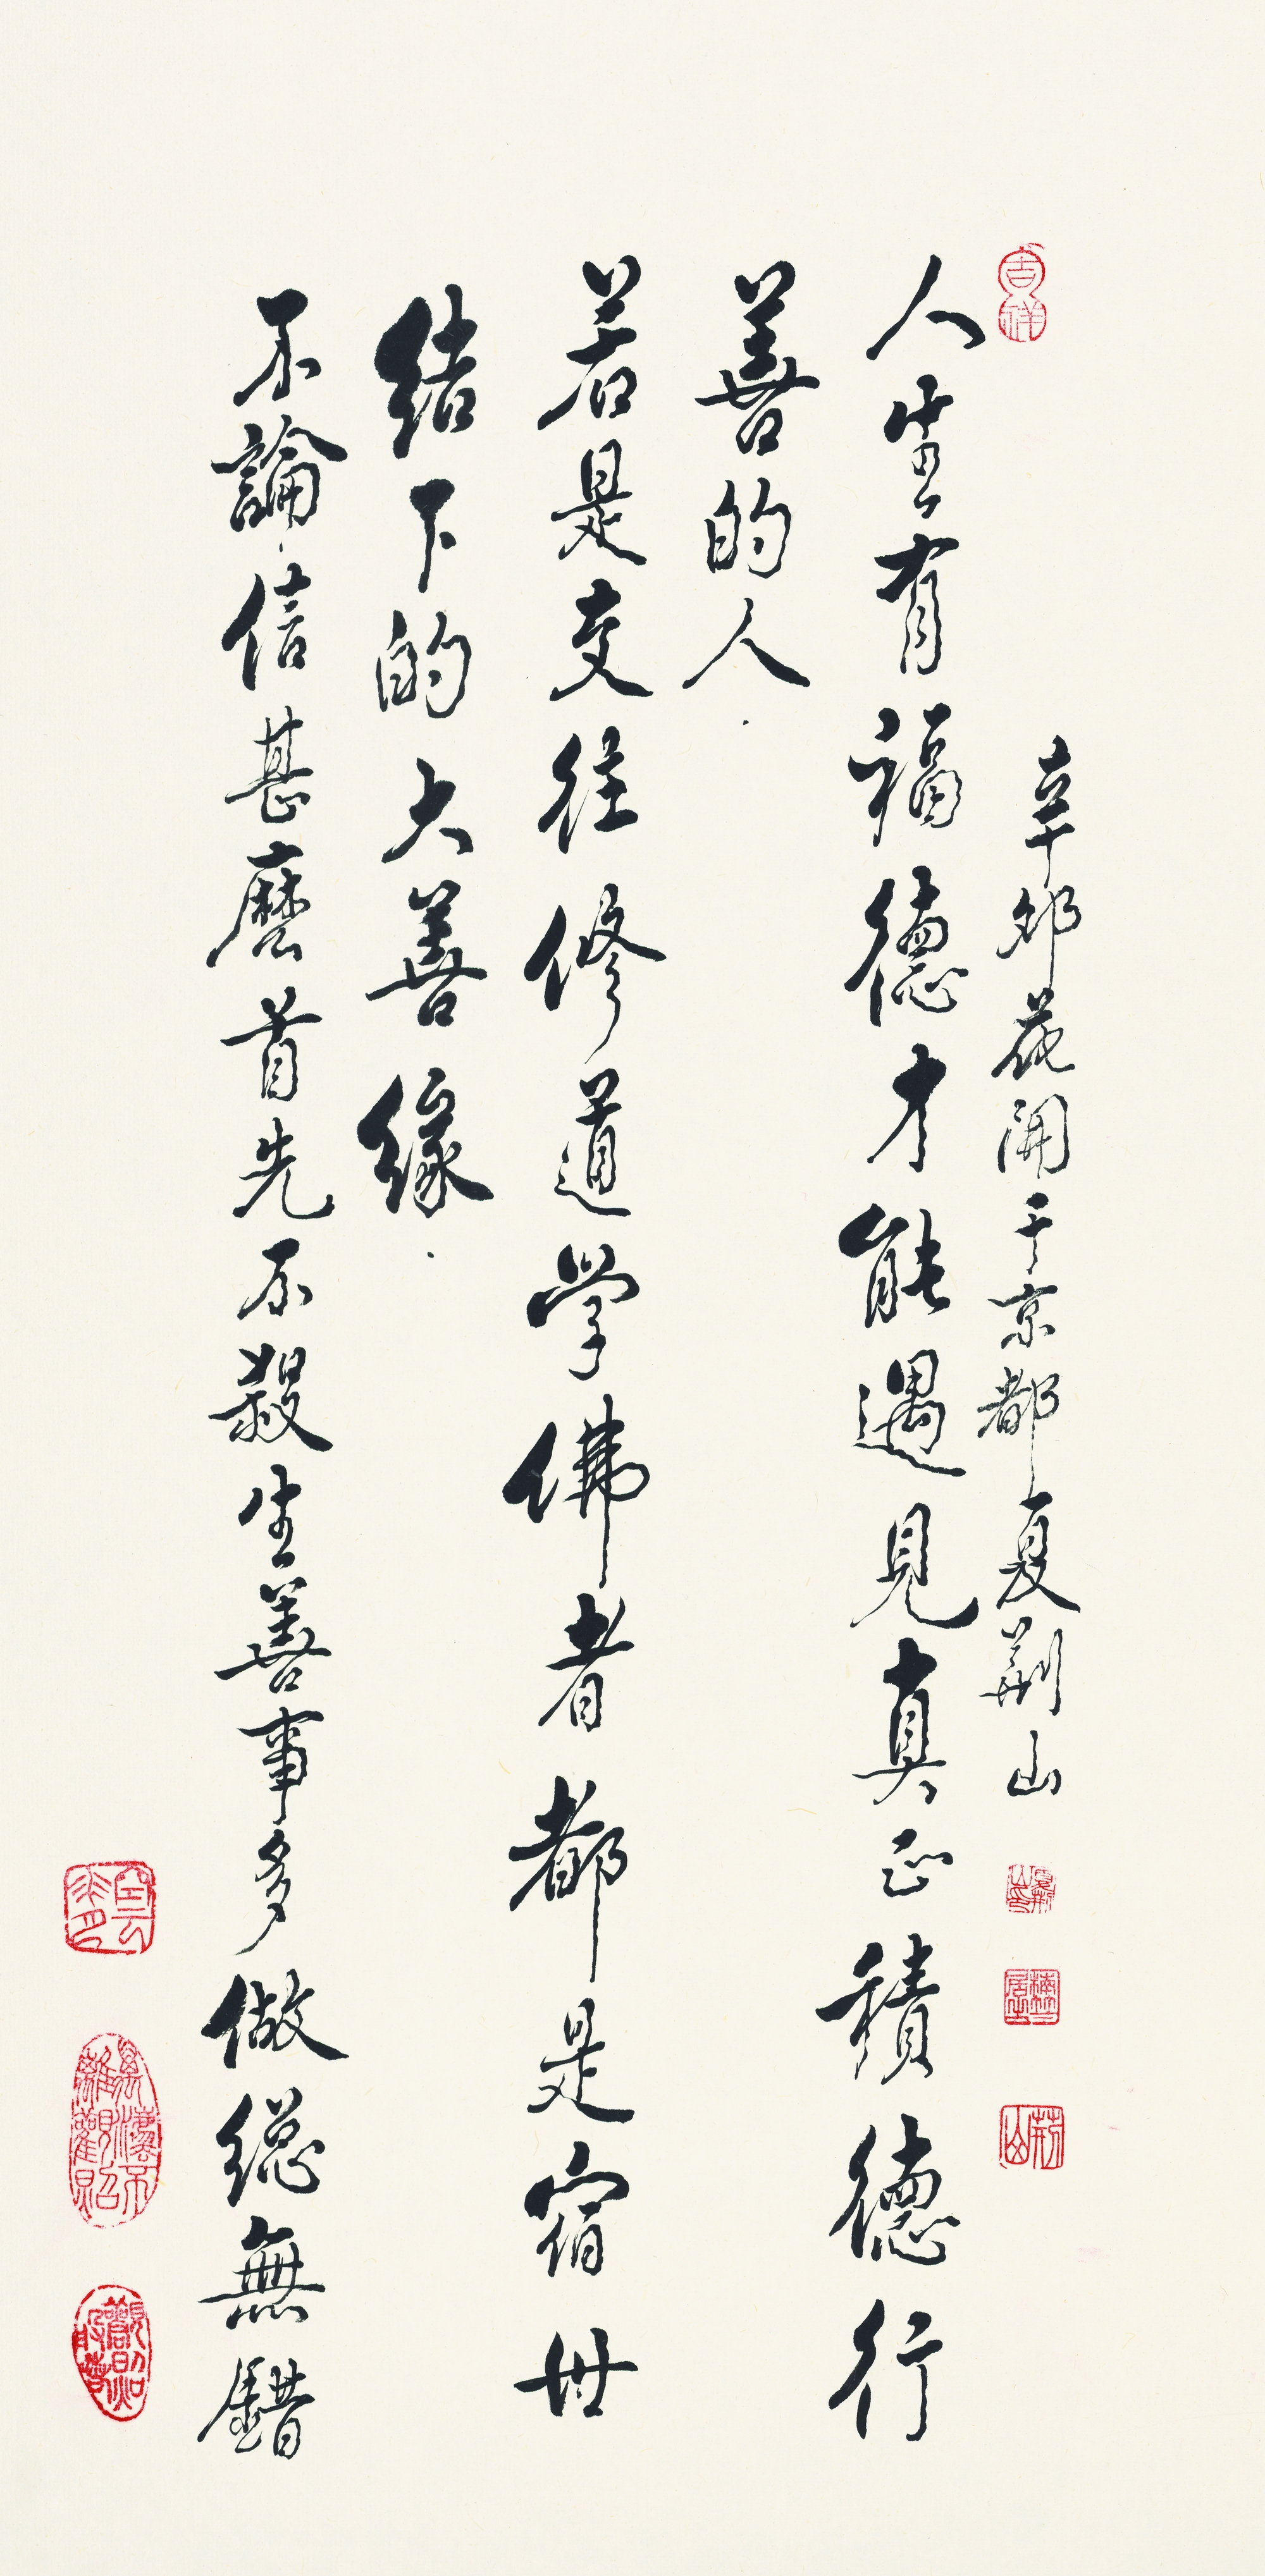 吉祥
辛卯花開于京都夏荊山
人生有福德才能遇見真正積德行
善的人.
若是交往修道学佛者都是宿世
结下的大善緣.
不論信甚麼首先不殺生善事多做総無錯
荊山